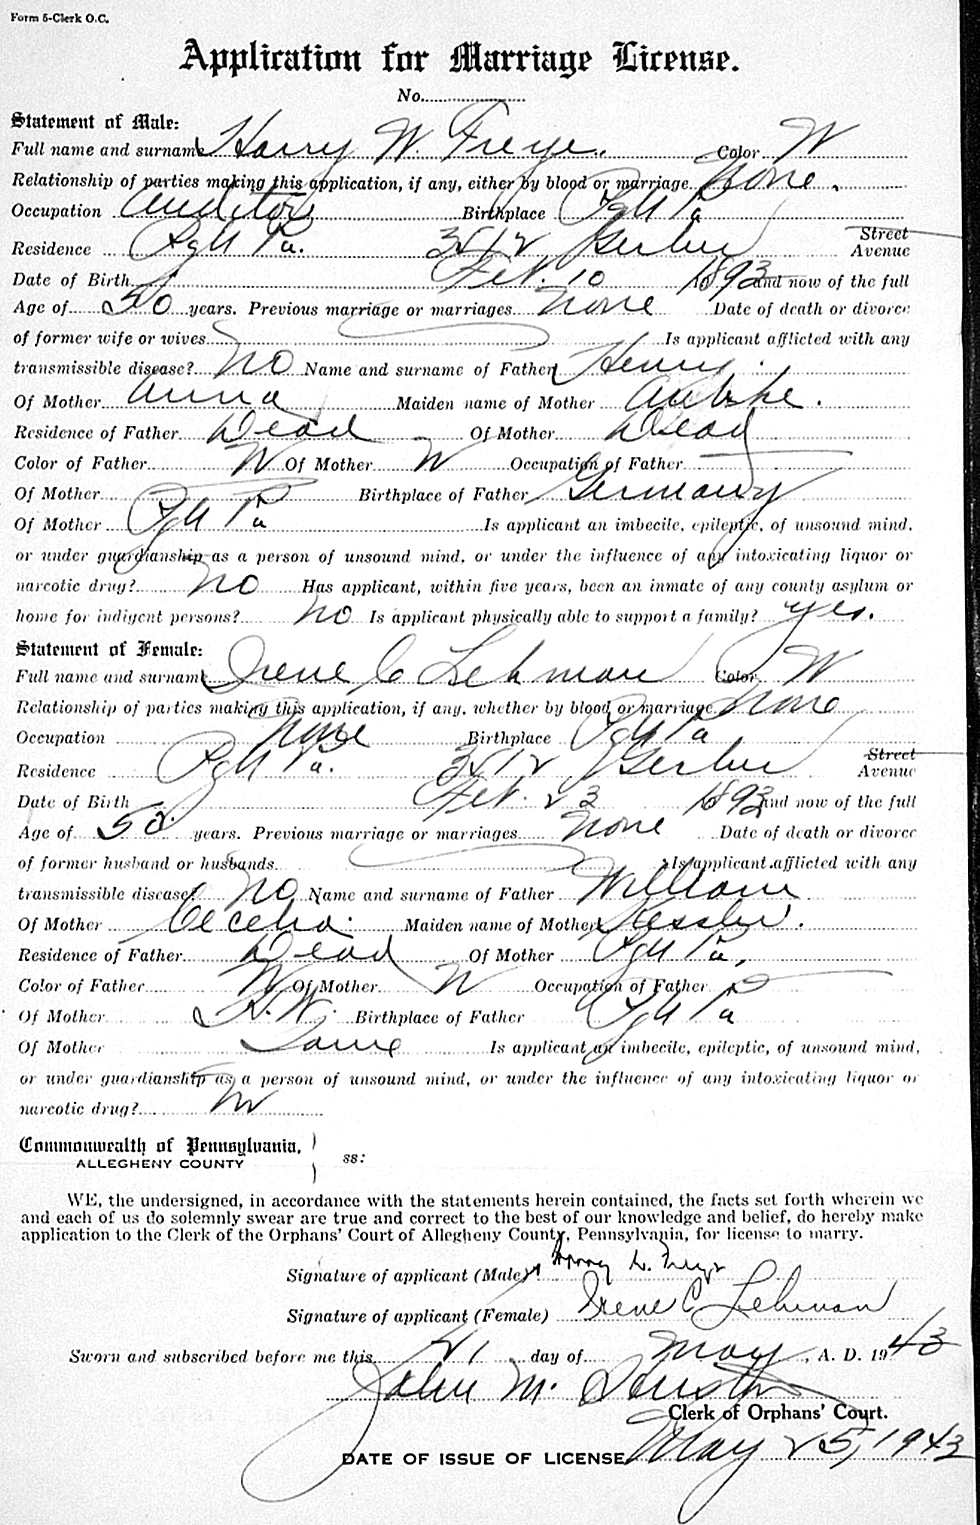 Form 5-Clerk O.C.
Application for Marriage License.
No.
Statement of Male:
Full name and surname Harry W. Freye. Color W
Relationship of parties making this application, if any, either by blood or marriage None.
Occupation Auditor Birthplace Pgh Pa
Residence Pgh Pa. 3412 Gerber Street Avenue
Date of Birth Feb. 10 1893 and now of the full
Age of 50 years. Previous marriage or marriages None Date of death or divorce
of former wife or wives Is applicant afflicted with any
transmissible disease? No Name and surname of Father Henry
Of Mother Anna Maiden name of Mother
Residence of Father Dead Of Mother Dead
Color of Father W Of Mother W Occupation of Father
Of Mother Birthplace of Father Germany
Of Mother Pgh Pa Is applicant an imbecile, epileptic, of unsound mind,
or under guardianship as a person of unsound mind, or under the influence of any intoxicating liquor or
narcotic drug? No Has applicant, within five years, been an inmate of any county asylum or
home for indigent persons? No Is applicant physically able to support a family? Yes.
Statement of Female:
Full name and surname Irene C Lehman Color W
Relationship of parties making this application, if any, whether by blood or marriage None
Occupation None Birthplace Pgh Pa
Residence Pgh Pa. 3412 Gerber Street Avenue
Date of Birth Feb. 23 1893 and now of the full
Age of 50. years. Previous marriage or marriages None Date of death or divorce
of former husband or husbands Is applicant afflicted with any
transmissible disease? No Name and surname of Father William
Of Mother Cecelia Maiden name of Mother Kessler.
Residence of Father Dead Of Mother Pgh Pa,
Color of Father W Of Mother W Occupation of Father
Of Mother H.W. Birthplace of Father Pgh Pa
Of Mother Same Is applicant an imbecile, epileptic, of unsound mind,
or under guardianship as a person of unsound mind, or under the influence of any intoxicating liquor or
narcotic drug? No
Commonwealth of Pennsylvania,
ALLEGHENY COUNTY ss:
WE, the undersigned, in accordance with the statements herein contained, the facts set forth wherein we
and each of us do solemnly swear are true and correct to the best of our knowledge and belief, do hereby make
application to the Clerk of the Orphans' Court of Allegheny County, Pennsylvania, for license to marry.
Signature of applicant (Male) Harry W. Freye
Signature of applicant (Female) Irene C Lehman
Sworn and subscribed before me this 21 day of May, A. D. 1943
John M. Huston
Clerk of Orphans' Court.
DATE OF ISSUE OF LICENSE May 25, 1943